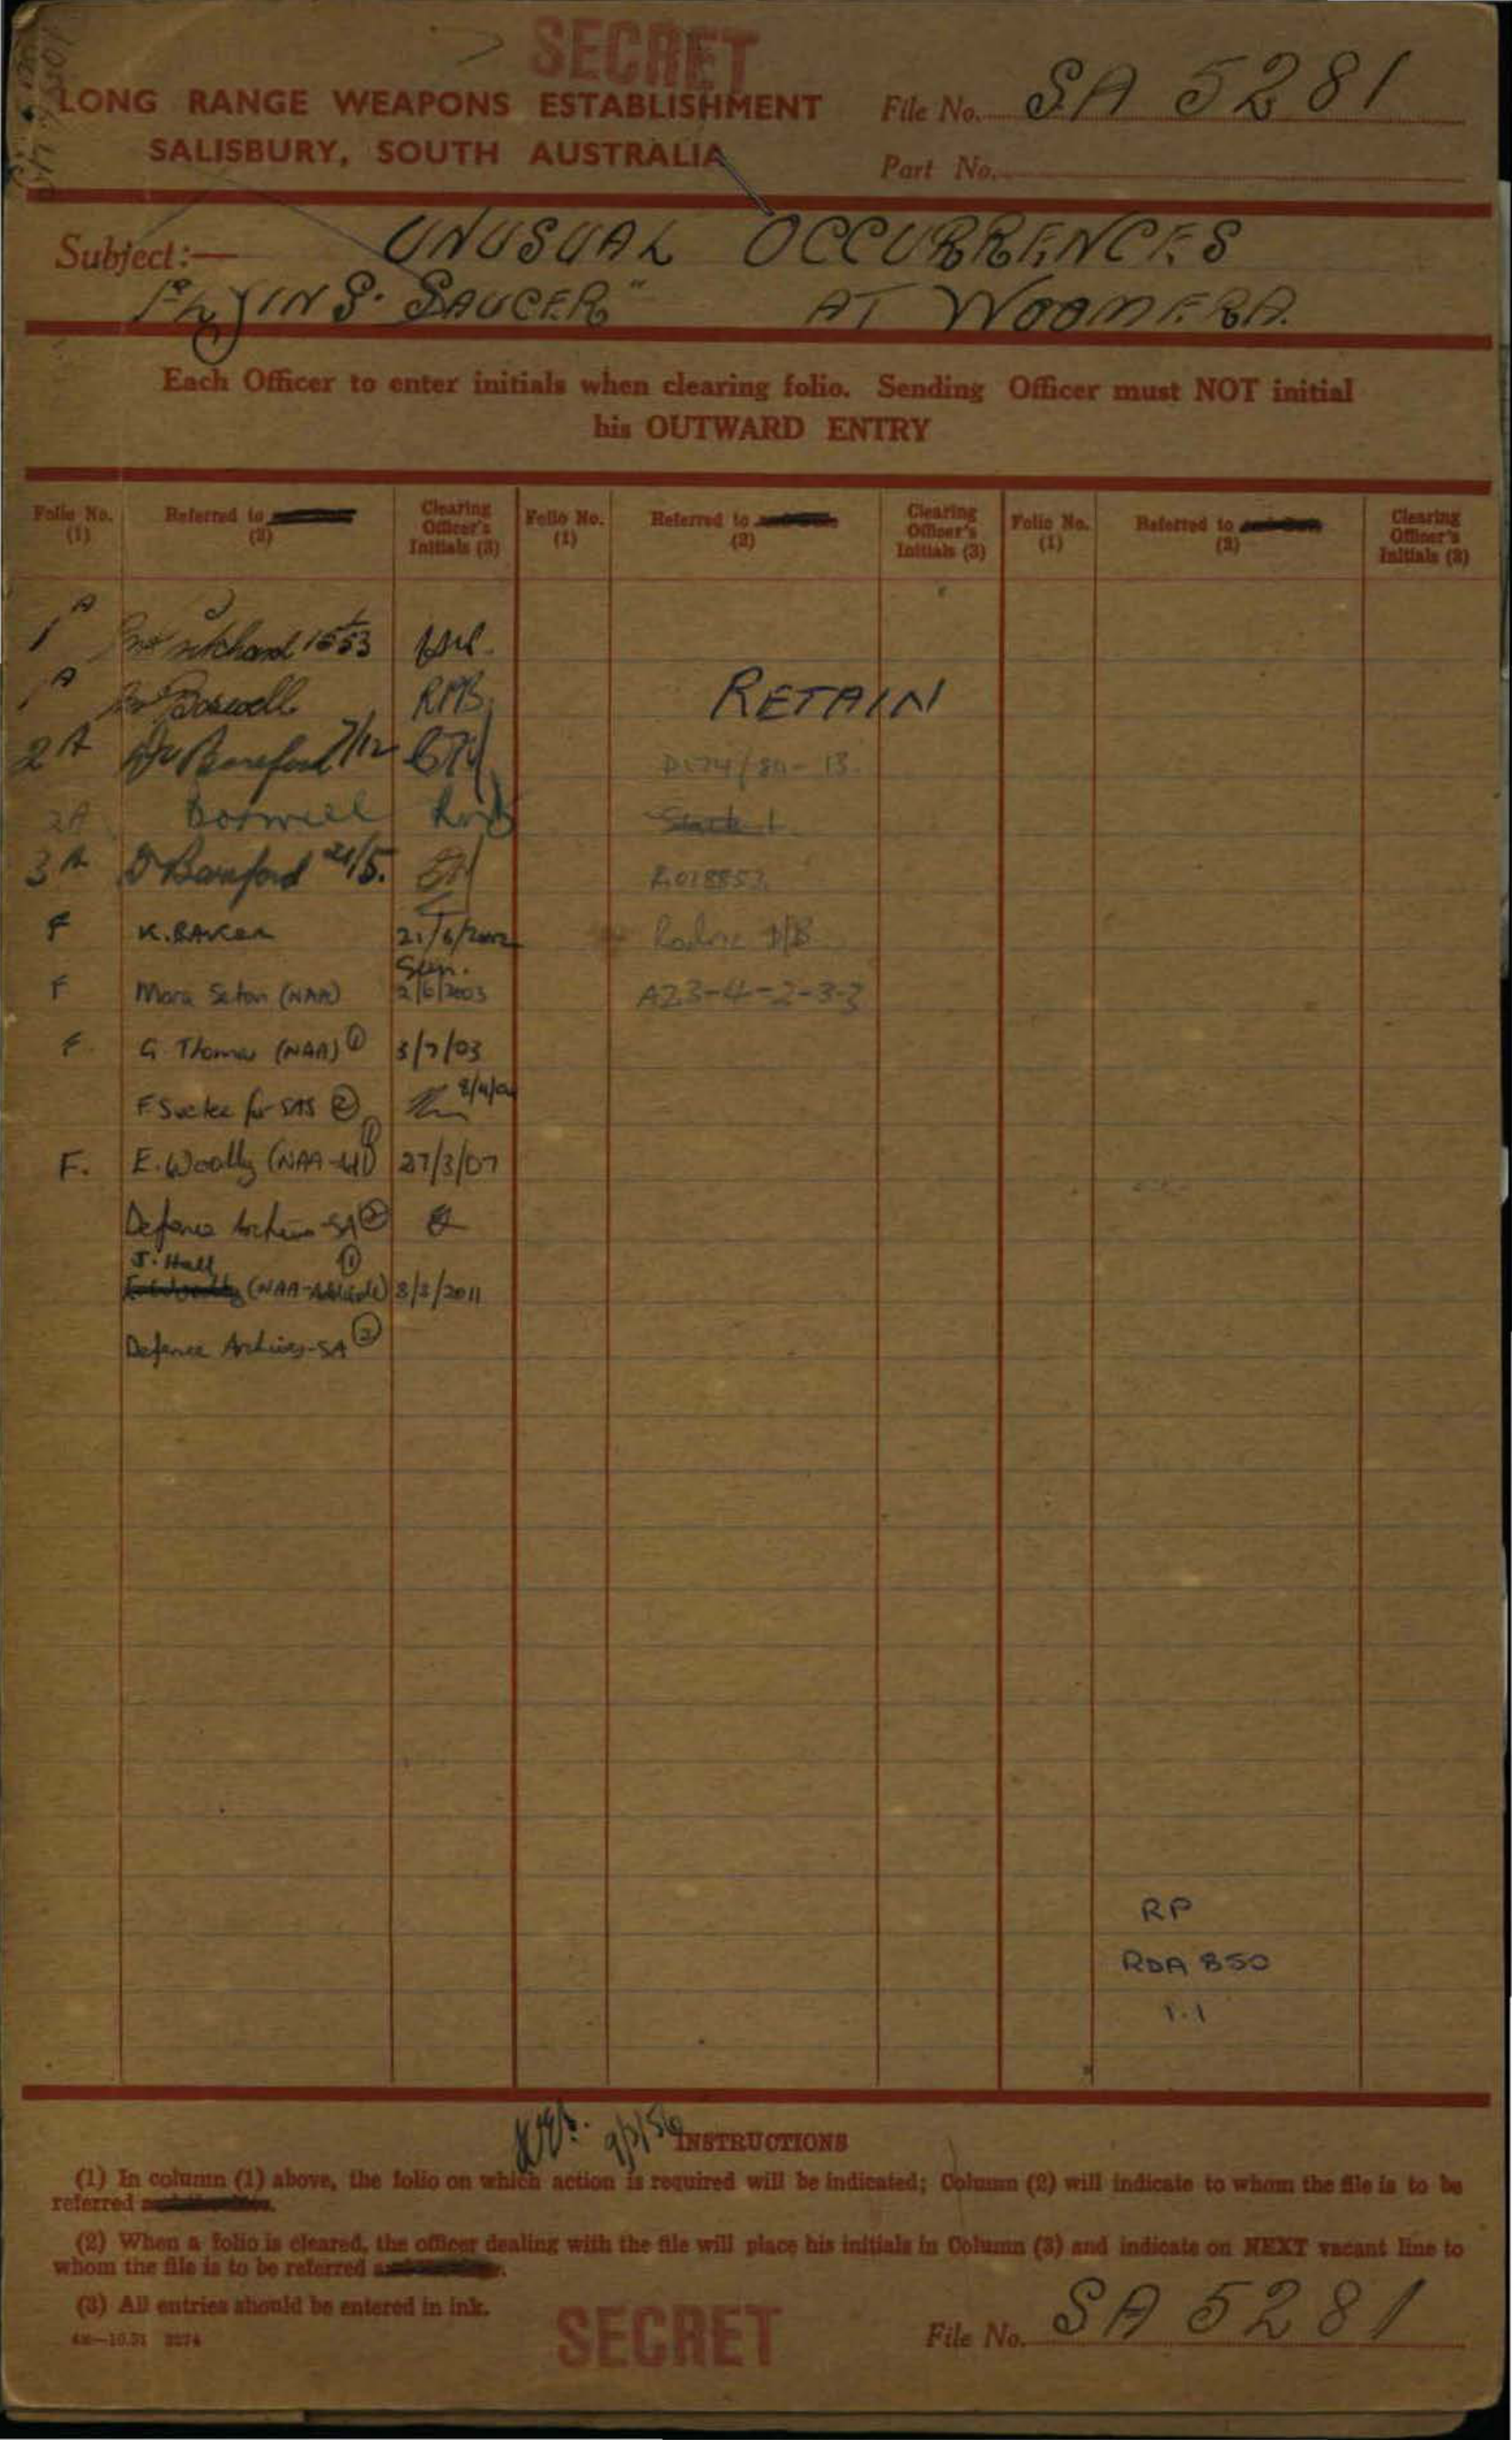 SECRET
LONG RANGE WEAPONS ESTABLISHMENT
SALISBURY, SOUTH AUSTRALIA
File No. SA 5281
Part No.
Subject:— UNUSUAL OCCURRENCES
"FLYING SAUCER" AT WOOMERA.
Each Officer to enter initials when clearing folio. Sending Officer must NOT initial
his OUTWARD ENTRY
Folio No. (1) Referred to (2) Clearing Officer's Initials (3) Folio No. (1) Referred to (2) Clearing Officer's Initials (3) Folio No. (1) Referred to (2) Clearing Officer's Initials (3)
1A
1A Boswell RMB RETAIN
2A 7/12
2A Boswell
3A 21/5.
F K. BAKER 21/6/2002
Seen.
F Mara Seton (NAA) 2/6/2003 A23-4-2-3-3
F. G. Thomas (NAA) ① 3/7/03
②
F. E. Woolly (NAA- ① 27/3/07
Defence Archives-SA ②
J. Hall ①
(NAA-Adelaide) 8/3/2011
Defence Archives-SA ②
RP
RDA 850
1.1
9/3/56
INSTRUCTIONS
(1) In column (1) above, the folio on which action is required will be indicated; Column (2) will indicate to whom the file is to be
referred
(2) When a folio is cleared, the officer dealing with the file will place his initials in Column (3) and indicate on NEXT vacant line to
whom the file is to be referred
(3) All entries should be entered in ink.
SECRET
File No. SA 5281